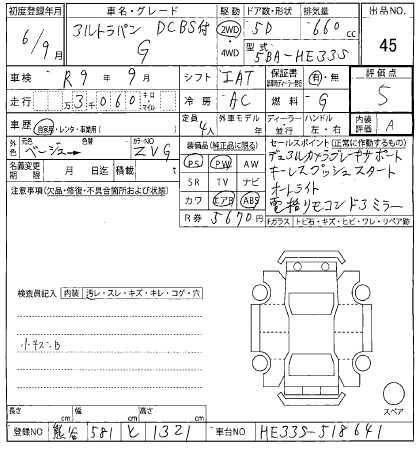 初度登録年月 車名・グレード 駆動 ドア数・形状 排気量 出品NO.
6/9月 アルトラパン DCBS付 G 2WD・4WD 5D 660cc 45
型式 5BA-HE33S
車検 R9年9月 シフト IAT 保証書 有・無 評価点
走行 万3千060 キロ・マイル 冷房 AC 燃料 G 5
車歴 自家用・レンタ・事業用( ) 定員 4人 外車モデル 年 ディーラー 並行 ハンドル 左・右 内装評価 A
外色 元色 ベージュー 色替 カラーNO ZVG
装備品(純正品に限る) セールスポイント(正常に作動するもの)
PS PW AW デュアルカメラブレーキサポート
名義変更期限 月 日迄 積載 t
SR TV ナビ キーレスプッシュスタート
注意事項(欠品・修復・不具合箇所および状態)
カワ エアB ABS オートライト
R券 5670円 電格リモコンドアミラー
Fガラス トビ石・キズ・ヒビ・ワレ・リペア跡
検査員記入 内装 汚レ・スレ・キズ・キレ・コゲ・穴
小キズ.B
スペア
長さ cm 幅 cm 高さ cm
登録NO 熊谷 581 と 1321 車台NO HE33S-518641